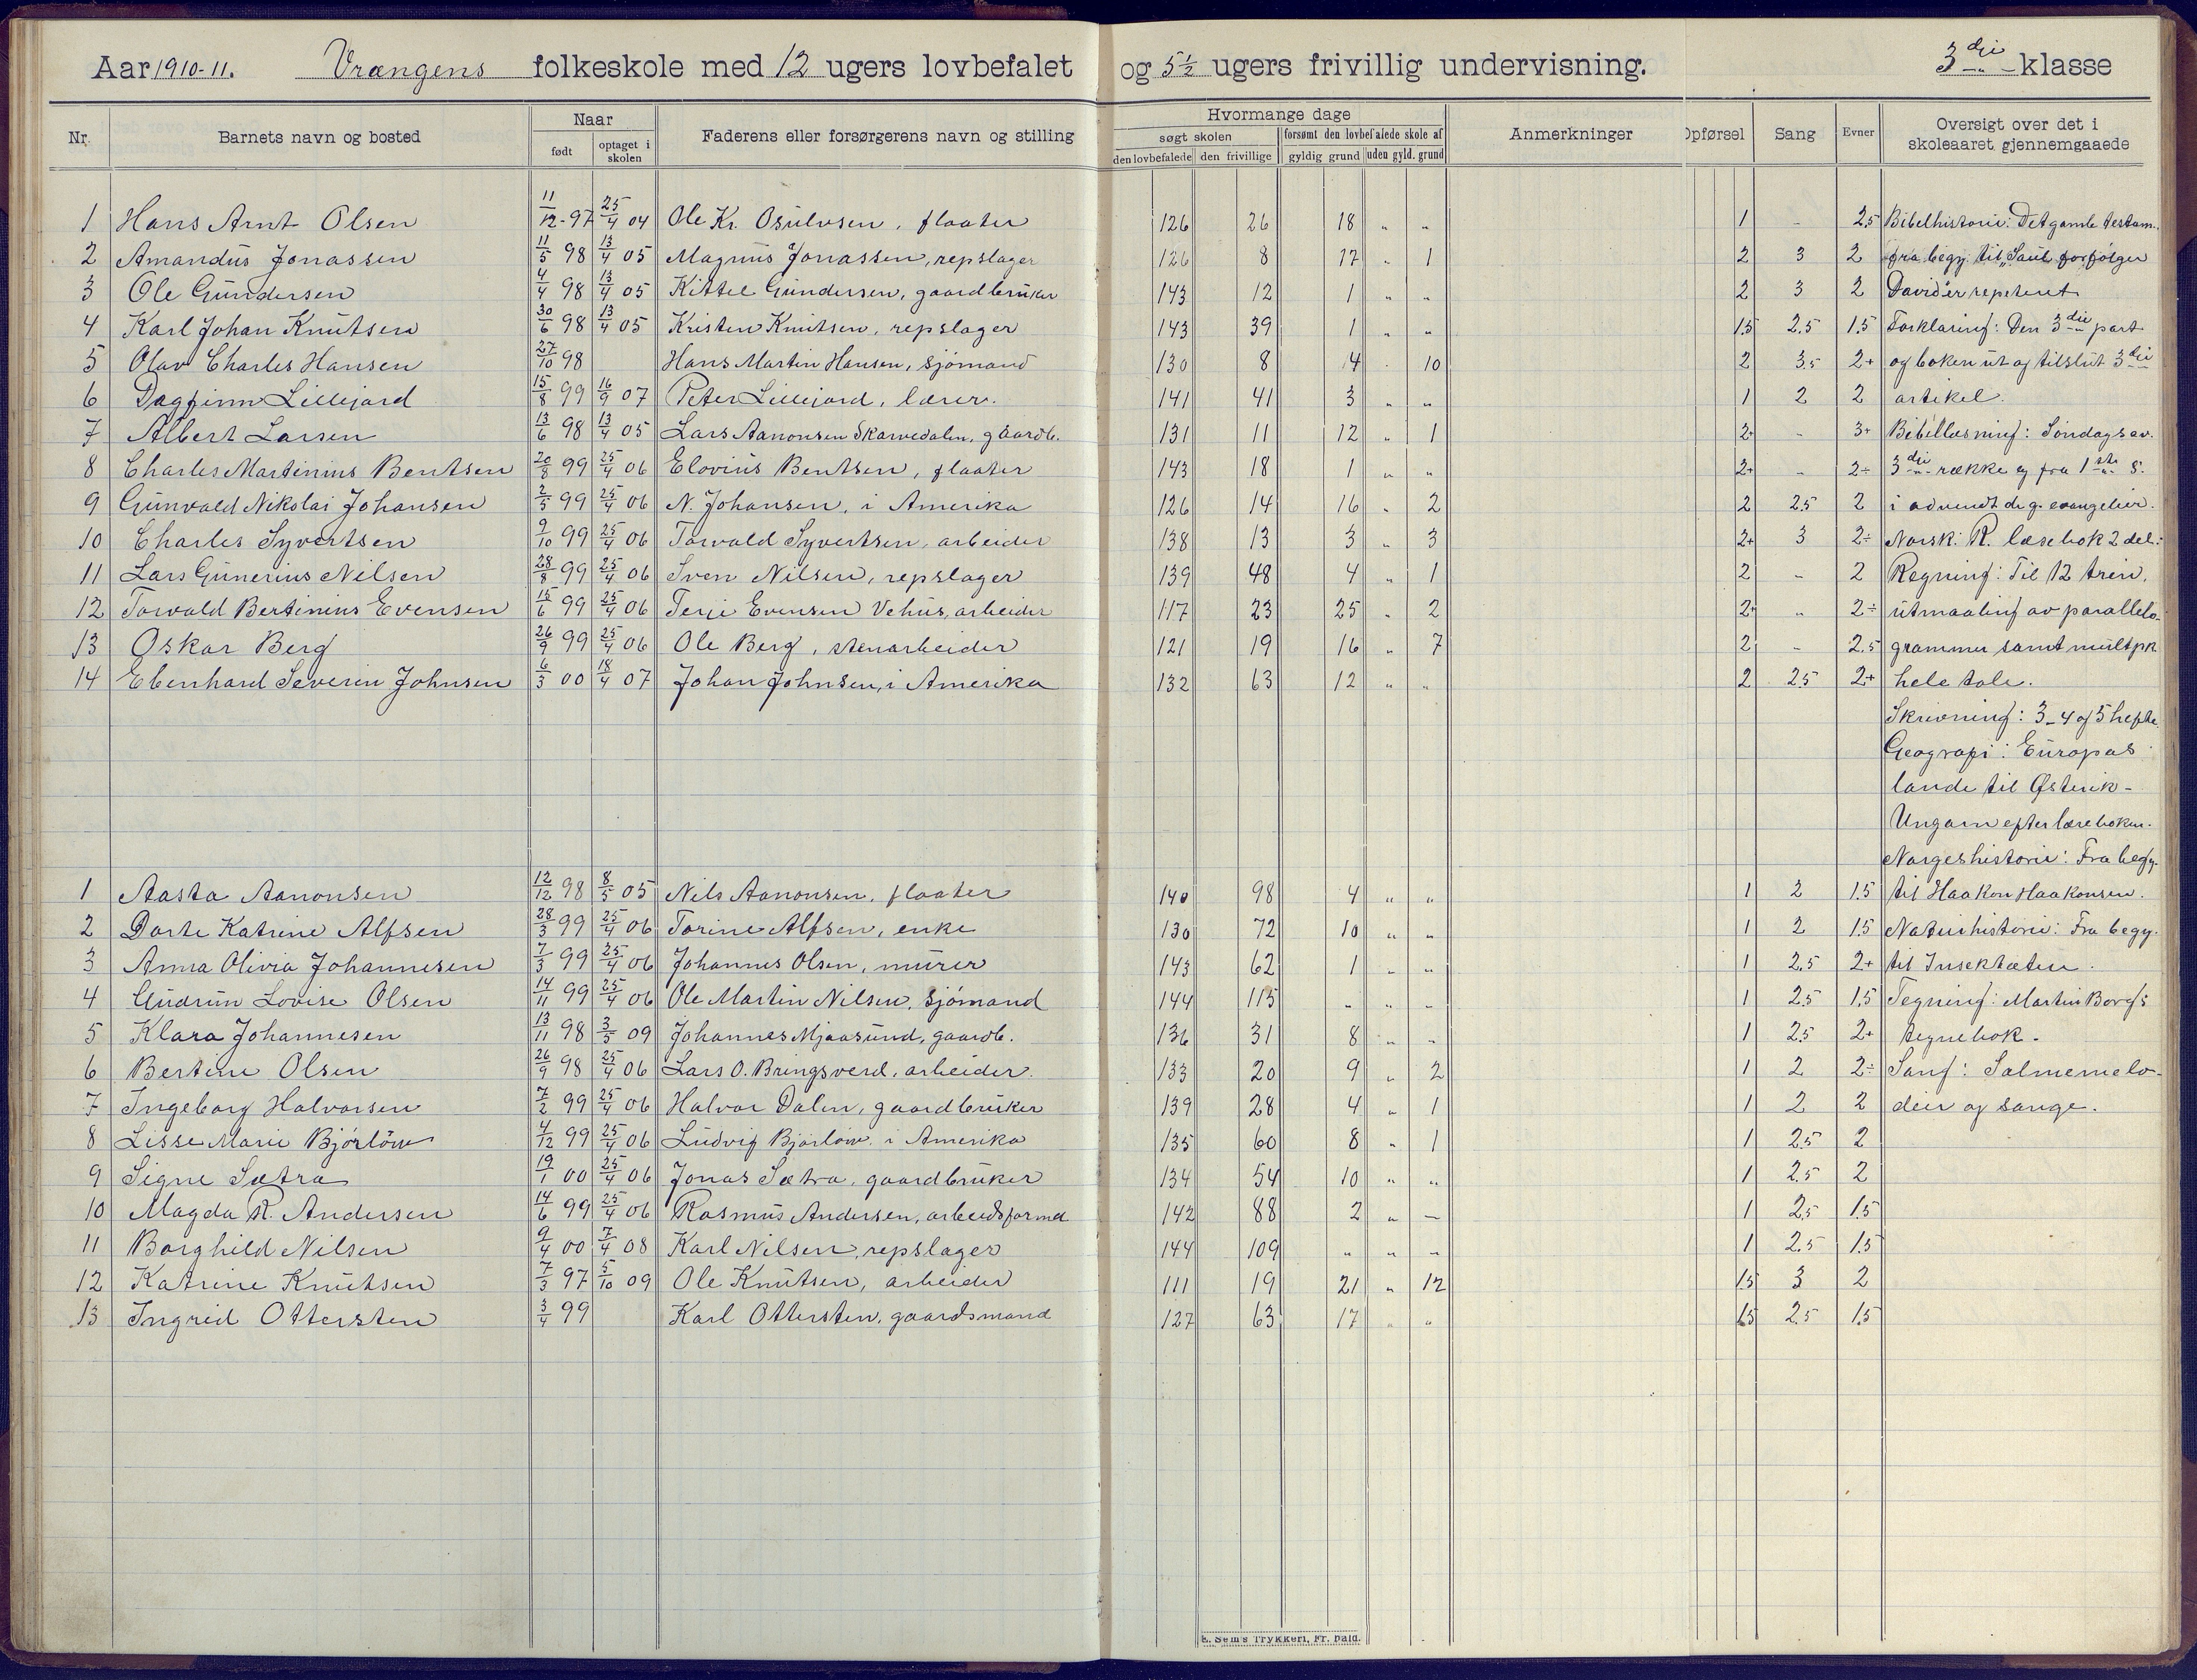 Aar 1910-11. Vrangens folkeskole med 12 ugers lovbefalet og 5 1/2 ugers frivillig undervisning. 3die klasse
Nr. Barnets navn og bosted Naar født optaget i skolen Faderens eller forsørgerens navn og stilling Hvormange dage søgt skolen den lovbefalede den frivillige forsømt den lovbefalede skole af gyldig grund uden gyld. grund Anmerkninger Opførsel Sang Evner Oversigt over det i skoleaaret gjennemgaaede
1 Hans Arnt Olsen 11/12-97 25/4 04 Ole Kr. Osulvsen, flaater 126 26 18 " " 1 - 2,5 Bibelhistorie: Det gamle testam.
2 Amandus Jonassen 11/5 98 13/4 05 Magnus Jonassen, repslager 126 8 17 " 1 2 3 2 fra begy. til "Saul forfølger
3 Ole Gundersen 4/4 98 13/4 05 Kittel Gundersen, gaardbruker 143 12 1 " " 2 3 2 David" er repetert
4 Karl Johan Knutsen 30/6 98 13/4 05 Kristen Knutsen, repslager 143 39 1 " " 1.5 2.5 1.5 Forklaring: Den 3die part
5 Olav Charles Hansen 27/10 98 Hans Martin Hansen, sjømand 130 8 4 " 10 2 3.5 2+ og boken ut og tilslut 3die
6 Dagfinn Lillejord 15/8 99 16/9 07 Peter Lillejord, lærer. 141 41 3 " " 1 2 2 artikel.
7 Albert Larsen 13/6 98 13/4 05 Lars Aanonsen Skarvedalen, gaardb. 131 11 12 " 1 2+ - 3+ Bibellæsning: Søndagsev.
8 Charles Martinius Bentsen 20/8 99 25/4 06 Elovius Bentsen, flaater 143 18 1 " " 2+ - 2÷ 3die række og fra 1ste S.
9 Gunvald Nikolai Johansen 2/5 99 25/4 06 N. Johansen, i Amerika 126 14 16 " 2 2 2.5 2 i advendt de g. evangelier.
10 Charles Syvertsen 9/10 99 25/4 06 Torvald Syvertsen, arbeider 138 13 3 " 3 2+ 3 2÷ Norsk: R. læsebok 2 del.
11 Lars Gunerius Nilsen 28/8 99 25/4 06 Sven Nilsen, repslager 139 48 4 " 1 2 - 2 Regning: Til 12 trin,
12 Torvald Bertinius Evensen 15/6 99 25/4 06 Terje Evensen Vehus, arbeider 117 23 25 " 2 2+ " 2÷ utmaaling av parallelo-
13 Oskar Berg 26/9 99 25/4 06 Ole Berg, stenarbeider 121 19 16 " 7 2 - 2.5 grammer samt multpk
14 Ebenhard Severin Johnsen 6/3 00 18/4 07 Johan Johnsen, i Amerika 132 63 12 " " 2 2.5 2+ hele tale.
Skrivning: 3-4 og 5 hefte.
Geografi: Europas
lande til Østerik-
Ungarn efter læreboken.
Norgeshistorie: Fra begy.
1 Aasta Aanonsen 12/12 98 8/5 05 Nils Aanonsen, flaater 140 98 4 " " 1 2 1.5 til Haakon Haakonsen.
2 Dorte Katrine Alfsen 28/3 99 25/4 06 Torine Alfsen, enke 130 72 10 " " 1 2 1.5 Naturhistorie: Fra begy.
3 Anna Olivia Johannesen 7/3 99 25/4 06 Johannes Olsen, murer 143 62 1 " " 1 2.5 2+ til Insektæten.
4 Gudrun Lovise Olsen 14/11 99 25/4 06 Ole Martin Nilsen, sjømand 144 115 " " " 1 2.5 1.5 Tegning: Martin Borg's
5 Klara Johannesen 13/11 98 3/5 09 Johannes Mjaasund, gaardb. 136 31 8 " " 1 2.5 2+ tegnebok.
6 Bertine Olsen 26/9 98 25/4 06 Lars O. Bringsverd, arbeider. 133 20 9 " 2 1 2 2÷ Sang: Salmemelo-
7 Ingeborg Halvorsen 7/2 99 25/4 06 Halvor Dalen, gaardbruker 139 28 4 " 1 1 2 2 dier og sange.
8 Lisse Marie Bjørløw 4/12 99 25/4 06 Ludvig Bjørløw, i Amerika 135 60 8 " 1 1 2.5 2
9 Signe Sætra 19/1 00 25/4 06 Jonas Sætra, gaardbruker 134 54 10 " " 1 2.5 2
10 Magda R. Andersen 14/6 99 25/4 06 Rasmus Andersen, arbeidsformd 142 88 2 " - 1 2.5 1.5
11 Borghild Nilsen 9/4 00 7/4 08 Karl Nilsen, repslager 144 109 " " " 1 2.5 1.5
12 Katrine Knutsen 7/3 97 5/10 09 Ole Knutsen, arbeider 111 19 21 " 12 1.5 3 2
13 Ingrid Ottersten 3/4 99 Karl Ottersten, gaardsmand 127 63 17 " " 1.5 2.5 1.5
E. Sem's Trykkeri, Fr.hald.